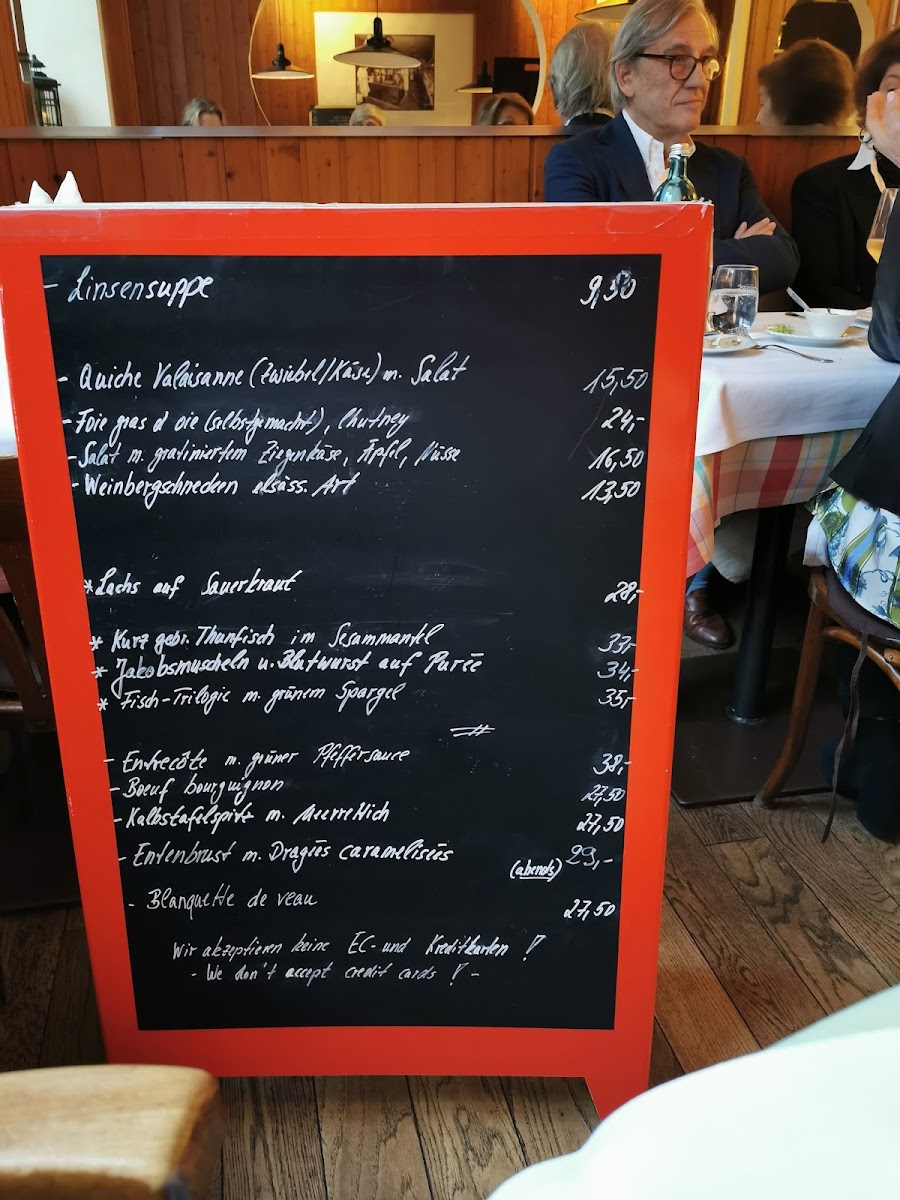 - Linsensuppe 9,50
- Quiche Valaisanne (Zwiebel/Käse) m. Salat 15,50
- Foie gras d'oie (selbstgemacht), Chutney 24,-
- Salat m. gratiniertem Ziegenkäse, Äpfel, Nüsse 16,50
- Weinbergschnecken elsäss. Art 13,50
* Lachs auf Sauerkraut 28,-
* Kurz gebr. Thunfisch im Sesammantel 33,-
* Jakobsmuscheln u. Blutwurst auf Purée 34,-
* Fisch-Trilogie m. grünem Spargel 35,-
- Entrecôte m. grüner Pfeffersauce 38,-
- Boeuf bourguignon 27,50
- Kalbstafelspitz m. Meerrettich 27,50
- Entenbrust m. Dragées caramelisées 29,-
(abends)
- Blanquette de veau 27,50
Wir akzeptieren keine EC- und Kreditkarten !
- We don't accept credit cards ! -